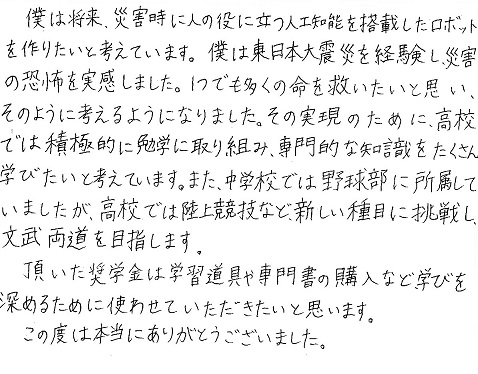 僕は将来、災害時に人の役に立つ人工知能を搭載したロボット
を作りたいと考えています。僕は東日本大震災を経験し、災害
の恐怖を実感しました。1つでも多くの命を救いたいと思い、
そのように考えるようになりました。その実現のために、高校
では積極的に勉学に取り組み、専門的な知識をたくさん
学びたいと考えています。また、中学校では野球部に所属して
いましたが、高校では陸上競技など、新しい種目に挑戦し、
文武両道を目指します。
頂いた奨学金は学習道具や専門書の購入など学びを
深めるために使わせていただきたいと思います。
この度は本当にありがとうございました。